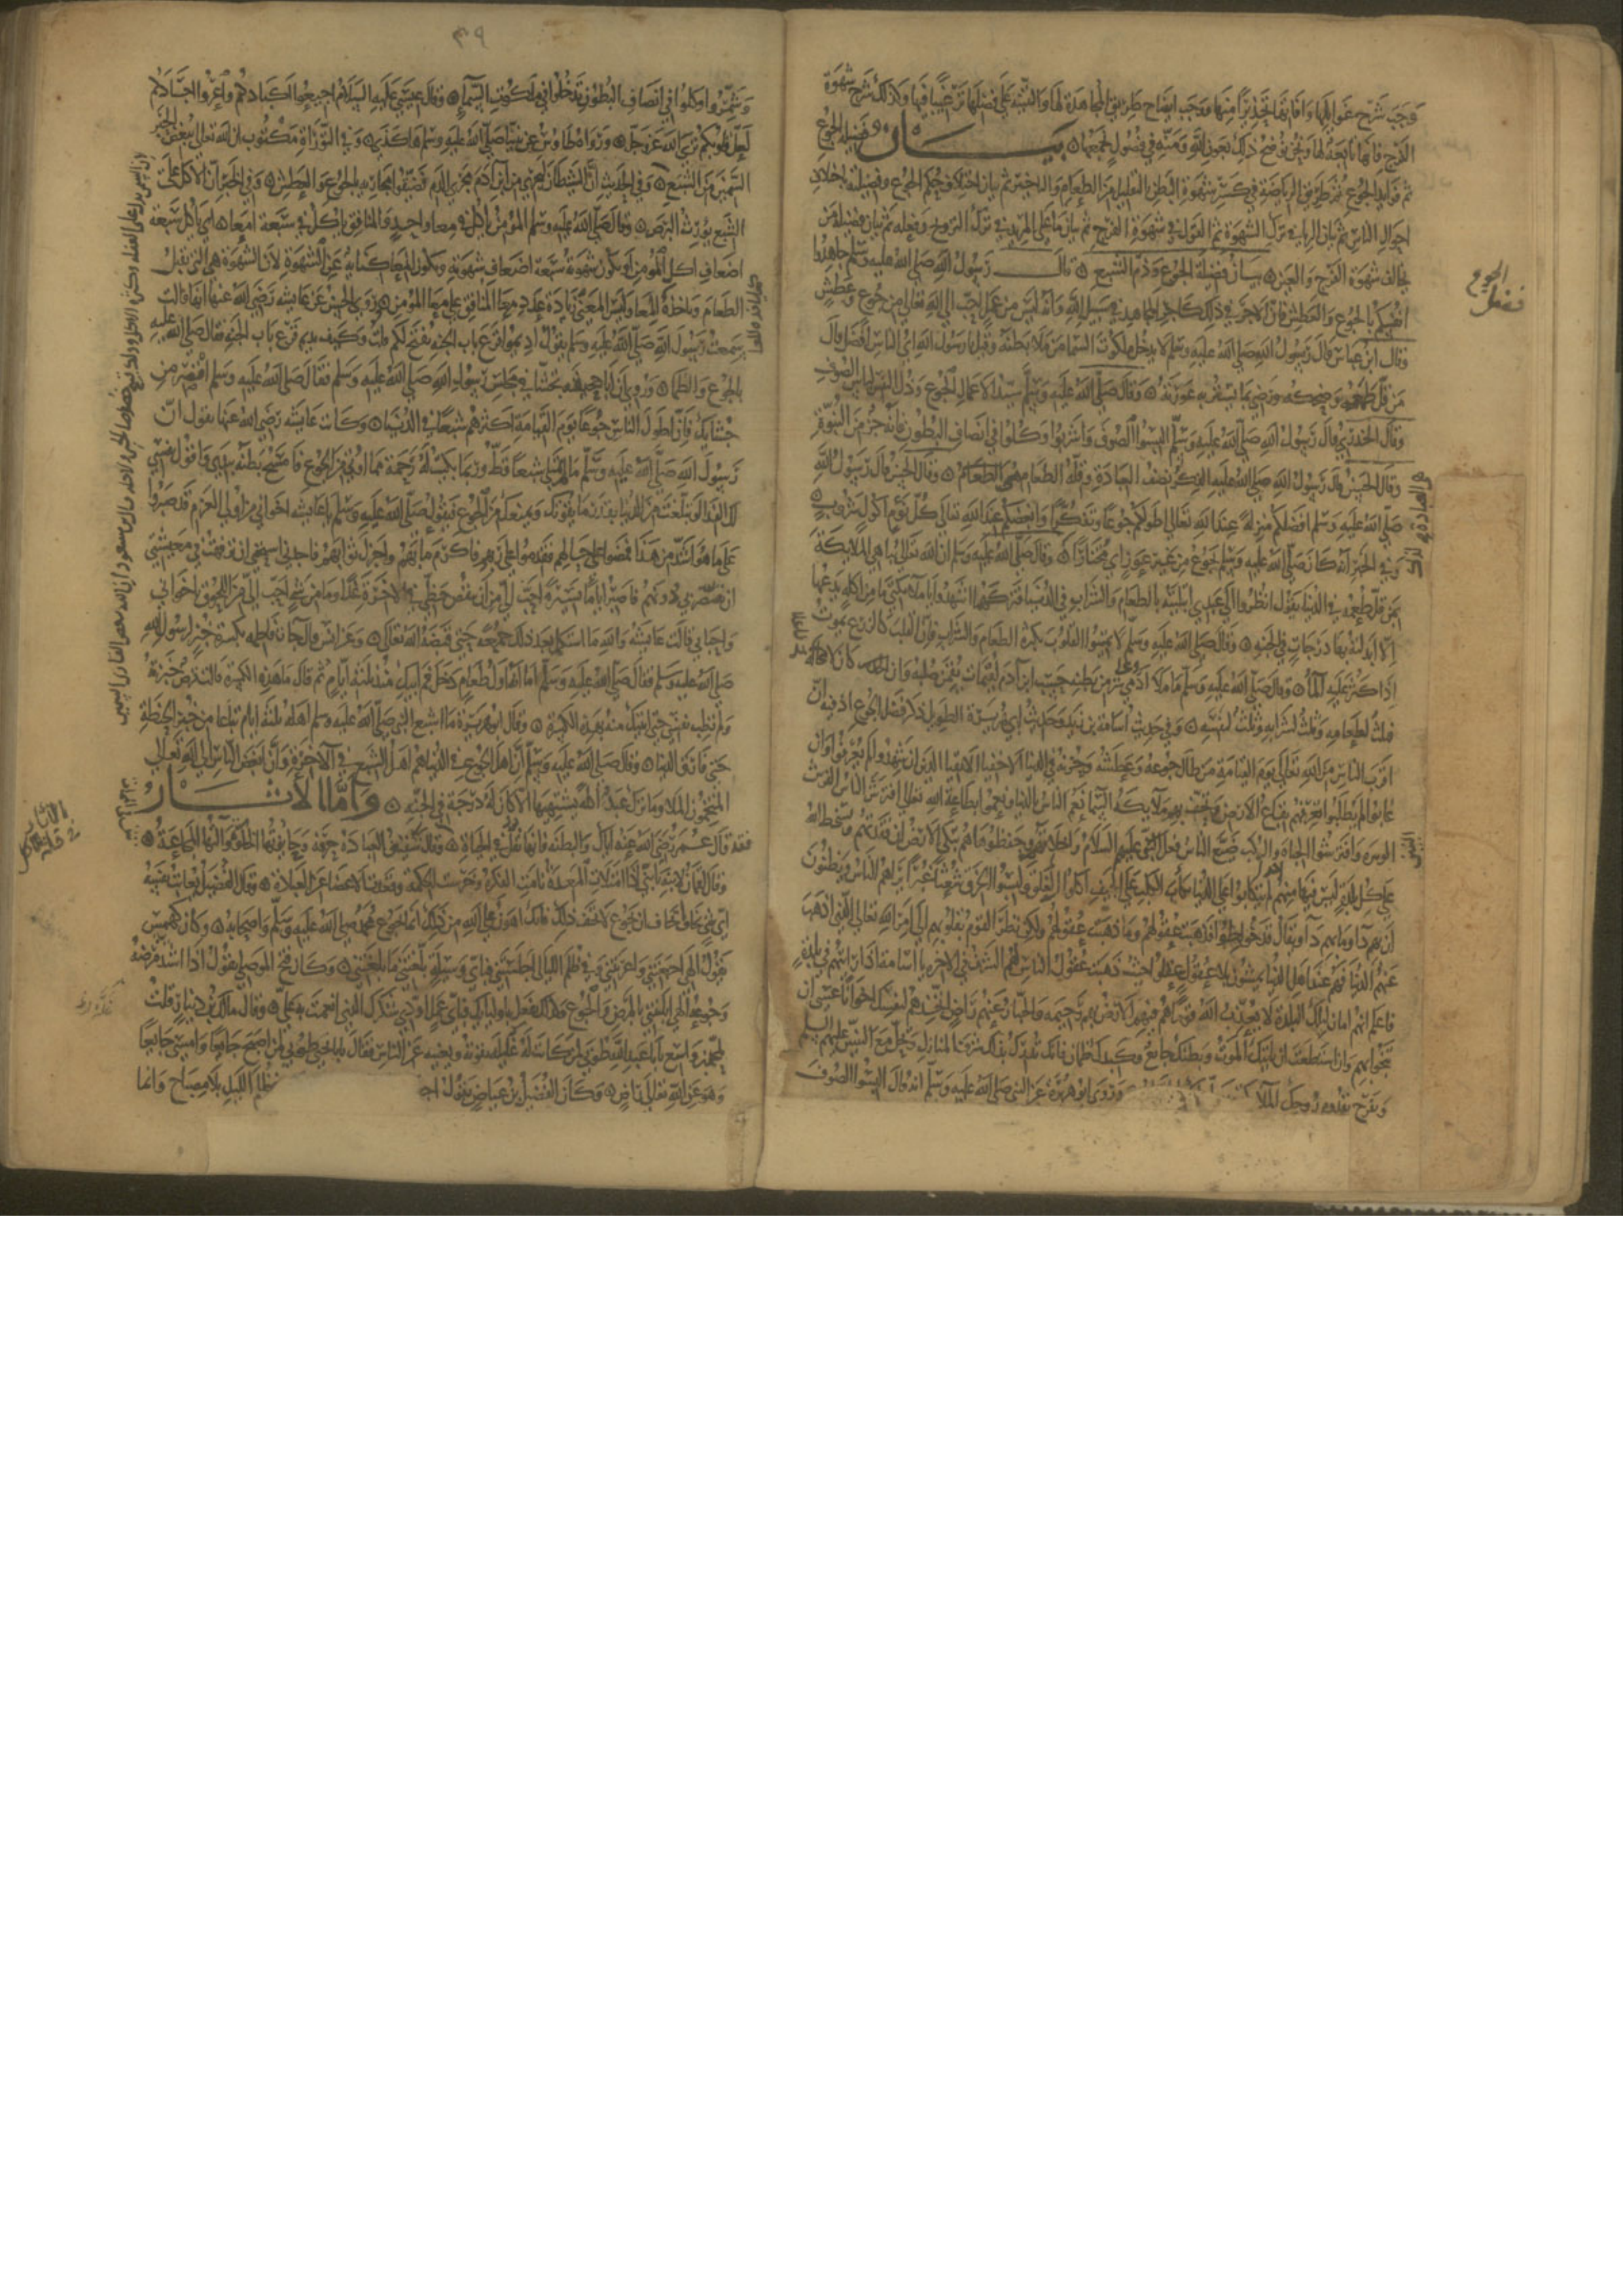 ووجب شرح غوائلها وآفاتها تحذيرا منها ووجب ايضاح طريق المجاهدة لها والتنبيه على فضلها ترغيبا فيها وكذلك شرح شهوة
الفرج فانها تابعة لها ونحن نوضح ذلك بعون الله ومنه في فصول تجمعها بيان فضيلة الجوع
ثم فوايد الجوع ثم طريق الرياضة في كسر شهوة البطن بالتقليل من الطعام والتاخير ثم بيان اختلاف حكم الجوع وفضيلته باختلاف
احوال الناس ثم بيان الرياء في ترك الشهوة ثم القول في شهوة الفرج ثم بيان ما على المريد في ترك التزويج وفعله ثم بيان فضيلة من
يخالف شهوة الفرج والعين بيان فضيلة الجوع وذم الشبع قال رسول الله صلى الله عليه وسلم جاهدوا
انفسكم بالجوع والعطش فان الاجر في ذلك كاجر المجاهد في سبيل الله وانه ليس من عمل احب الى الله تعالى من جوع وعطش
وقال ابن عباس قال رسول الله صلى الله عليه وسلم لا يدخل ملكوت السما من ملا بطنه وقيل يا رسول الله اي الناس افضل قال
من قل طعمه وضحكه ورضي بما يستر به عورته وقال صلى الله عليه وسلم سيد الاعمال الجوع وذل النفس لباس الصوف
وقال الخدري قال رسول الله صلى الله عليه وسلم البسوا الصوف واشربوا وكلوا في انصاف البطون فانه جزء من النبوة
وقال الحسن قال رسول الله صلى الله عليه الفكر نصف العبادة وقلة الطعام هي الطعام وقال الحسن قال رسول الله
صلى الله عليه وسلم افضلكم منزلة عند الله تعالى اطولكم جوعا وتفكرا وابغضكم عند الله تعالى كل نؤم اكول شروب
وفي الخبر انه كان صلى الله عليه وسلم يجوع من غير عوز اي مختارا وقال صلى الله عليه وسلم ان الله تعالى يباهي الملايكة
بمن قل طعمه في الدنيا يقول انظروا الى عبدي ابتليته بالطعام والشراب في الدنيا فتركهما اشهدوا يا ملايكتي ما من اكلة يدعها
الا ابدلته بها درجات في الجنة وقال صلى الله عليه وسلم لا تميتوا القلوب بكثرة الطعام والشراب فان القلب كالزرع يموت
اذا كثر عليه الماء وقال صلى الله عليه وسلم ما ملا ادمي وعا شر من بطنه حسب ابن آدم لقيمات يقمن صلبه وان كان لا محالة
فثلث لطعامه وثلث لشرابه وثلث لنفسه وفي حديث اسامة بن زيد وحديث ابي هريرة الطويل ذكر فضل الجوع اذ فيه ان
اقرب الناس من الله تعالى يوم القيامة من طال جوعه وعطشه وحزنه في الدنيا الاحفيا الاتقيا الذين ان شهدوا لم يعرفوا وان
غابوا لم يفتقدوا تعرفهم بقاع الارض وتحف بهم ملايكة السما نعم الناس بالدنيا ونعموا بطاعة الله تعالى افترش الناس الفرش
الوثيرة وافترشوا الجباه والركب ضيع الناس فعل النبيين عليهم السلام واخلاقهم وحفظوها هم تبكي الارض اذا فقدتهم ويسخط الله
على كل بلدة ليس فيها منهم احد لم يتكالبوا على الدنيا تكالب الكلاب على الجيف اكلوا العلق ولبسوا الخرق شعثا غبرا يراهم الناس ويظنون
ان بهم دا وما بهم دا ويقال قد خولطوا فذهبت عقولهم وما ذهبت عقولهم ولكن نظر القوم بقلوبهم الى امر الله تعالى الذي اذهب
عنهم الدنيا فهم عند اهل الدنيا يمشون بلا عقول عقلوا حيث ذهبت عقول الناس لهم الشرف في الآخرة يا اسامة اذا رايتهم في بلدة
فاعلم انهم امان لاهل البلدة لا يعذب الله قوما هم فيهم الارض بهم رحيمة والجبار عنهم راض اتخذهم لنفسك اخوانا عسى ان
تنجو بهم وان استطعت ان ياتيك الموت وبطنك جايع وكبدك ظمآن فانك تدرك بذلك شرف المنازل وتحل مع النبيين عليهم السلم
وتفرح بقدوم روحك الملا وروى ابو هريرة عن النبي صلى الله عليه وسلم انه قال البسوا الصوف
فضل
الجوع
هي العبادة
٣٩
وشمروا وكلوا في انصاف البطون تدخلوا في ملكوت السماء وقال عيسى عليه السلام اجيعوا اكبادكم واعروا اجسادكم
لعل قلوبكم ترى الله عز وجل وروى هذا طاوس عن نبينا صلى الله عليه وسلم هكذى وفي التوراة مكتوب ان الله تعالى يبغض الحبر
السمين من الشبع وفي الحديث ان الشيطان ليجري من ابن آدم مجرى الدم فضيقوا مجاريه بالجوع والعطش وفي الخبر ان الاكل على
الشبع يورث البرص وقال صلى الله عليه وسلم المؤمن ياكل في معا واحد والمنافق ياكل في سبعة امعاء اي ياكل سبعة
اضعاف اكل المؤمن او تكون شهوته سبعة اضعاف شهوته ويكون المعا كناية عن الشهوة لان الشهوة هي التي تقبل
الطعام وتاخذه كالمعا وليس المعنى زيادة عدد معا المنافق على معا المؤمن وروى الحسن عن عايشة رضي الله عنها انها قالت
سمعت رسول الله صلى الله عليه وسلم يقول اديموا قرع باب الجنة يفتح لكم قلت وكيف نديم قرع باب الجنة قال صلى الله عليه
بالجوع والظما وروي ان ابا جحيفة تجشا في مجلس رسول الله صلى الله عليه وسلم فقال صلى الله عليه وسلم اقصر من
جشايك فان اطول الناس جوعا يوم القيامة اكثرهم شبعا في الدنيا وكانت عايشة رضي الله عنها تقول ان
رسول الله صلى الله عليه وسلم لم يمتلي شبعا قط وربما بكيت له رحمة مما اوتي من الجوع فامسح بطنه بيدي واقول نفسي
لك الفدا لو تبلغت من الدنيا بقدر ما يقوتك ويمنعك من الجوع فيقول صلى الله عليه وسلم يا عايشة اخواني من اولي العزم قد صبروا
على ما هو اشد من هذا فمضوا على حالهم فقدموا على ربهم فاكرم مآبهم واجزل ثوابهم فاجدني استحيي ان ترفهت في معيشتي
ان يقصر بي دونهم فاصبر اياما يسيرة احب الي من ان ينقص حظي في الآخرة غدا وما من شي احب الي من اللحوق باخواني
واخلاي قالت عايشة والله ما استكمل بعد ذلك جمعة حتى قبضه الله تعالى وعن انس قال جات فاطمة بكسرة خبز لرسول الله
صلى الله عليه وسلم فقال صلى الله عليه وسلم اما انه اول طعام دخل فم ابيك منذ ثلثة ايام ثم قال ما هذه الكسرة قالت قرص خبزته
ولم تطب نفسي حتى اتيتك منه بهذه الكسرة وقال ابو هريرة ما اشبع النبي صلى الله عليه وسلم اهله ثلثة ايام تباعا من خبز الحنطة
حتى فارق الدنيا وقال صلى الله عليه وسلم ان اهل الجوع في الدنيا هم اهل الشبع في الآخرة وان ابغض الناس الى الله تعالى
المتخمون الملا وما ترك عبد اكلة يشتهيها الا كان له درجة في الجنة واما الآثار
فقد قال عمر رضي الله عنه اياكم والبطنة فانها ثقل في الحياة وقال شقيق العبادة حرفة وحانوتها الخلوة وآلتها المجاعة
وقال لقمان لابنه يا بني اذا امتلات المعدة نامت الفكرة وخرست الحكمة وقعدت الاعضا عن العبادة وكان الفضيل يعاتب نفسه
اي شي تخاف اتخاف ان تجوع لا تخف ذلك فانك اهون على الله من ذلك انما يجوع محمد صلى الله عليه وسلم واصحابه وكان كهمس
يقول الهي اجعتني واعريتني وفي ظلم الليالي اجلستني فباي وسيلة بلغتني ما بلغتني وكان فتح الموصلي يقول اذا اشتد مرضه
وجوعه الهي ابتليتني بالمرض والجوع وكذلك تفعل باوليايك فباي عمل اودي شكرك الذي انعمت به علي وقال مالك بن دينار قلت
لمحمد بن واسع يا ابا عبد الله طوبى لمن كانت له غليلة تقوته وتغنيه عن الناس فقال يا ابا يحيى طوبى لمن اصبح جايعا وامسى جايعا
وهو عن الله تعالى راض وكان الفضيل بن عياض يقول اجـ ظلم الليل بلا مصباح وانما
الآثار
في قلة الاكل